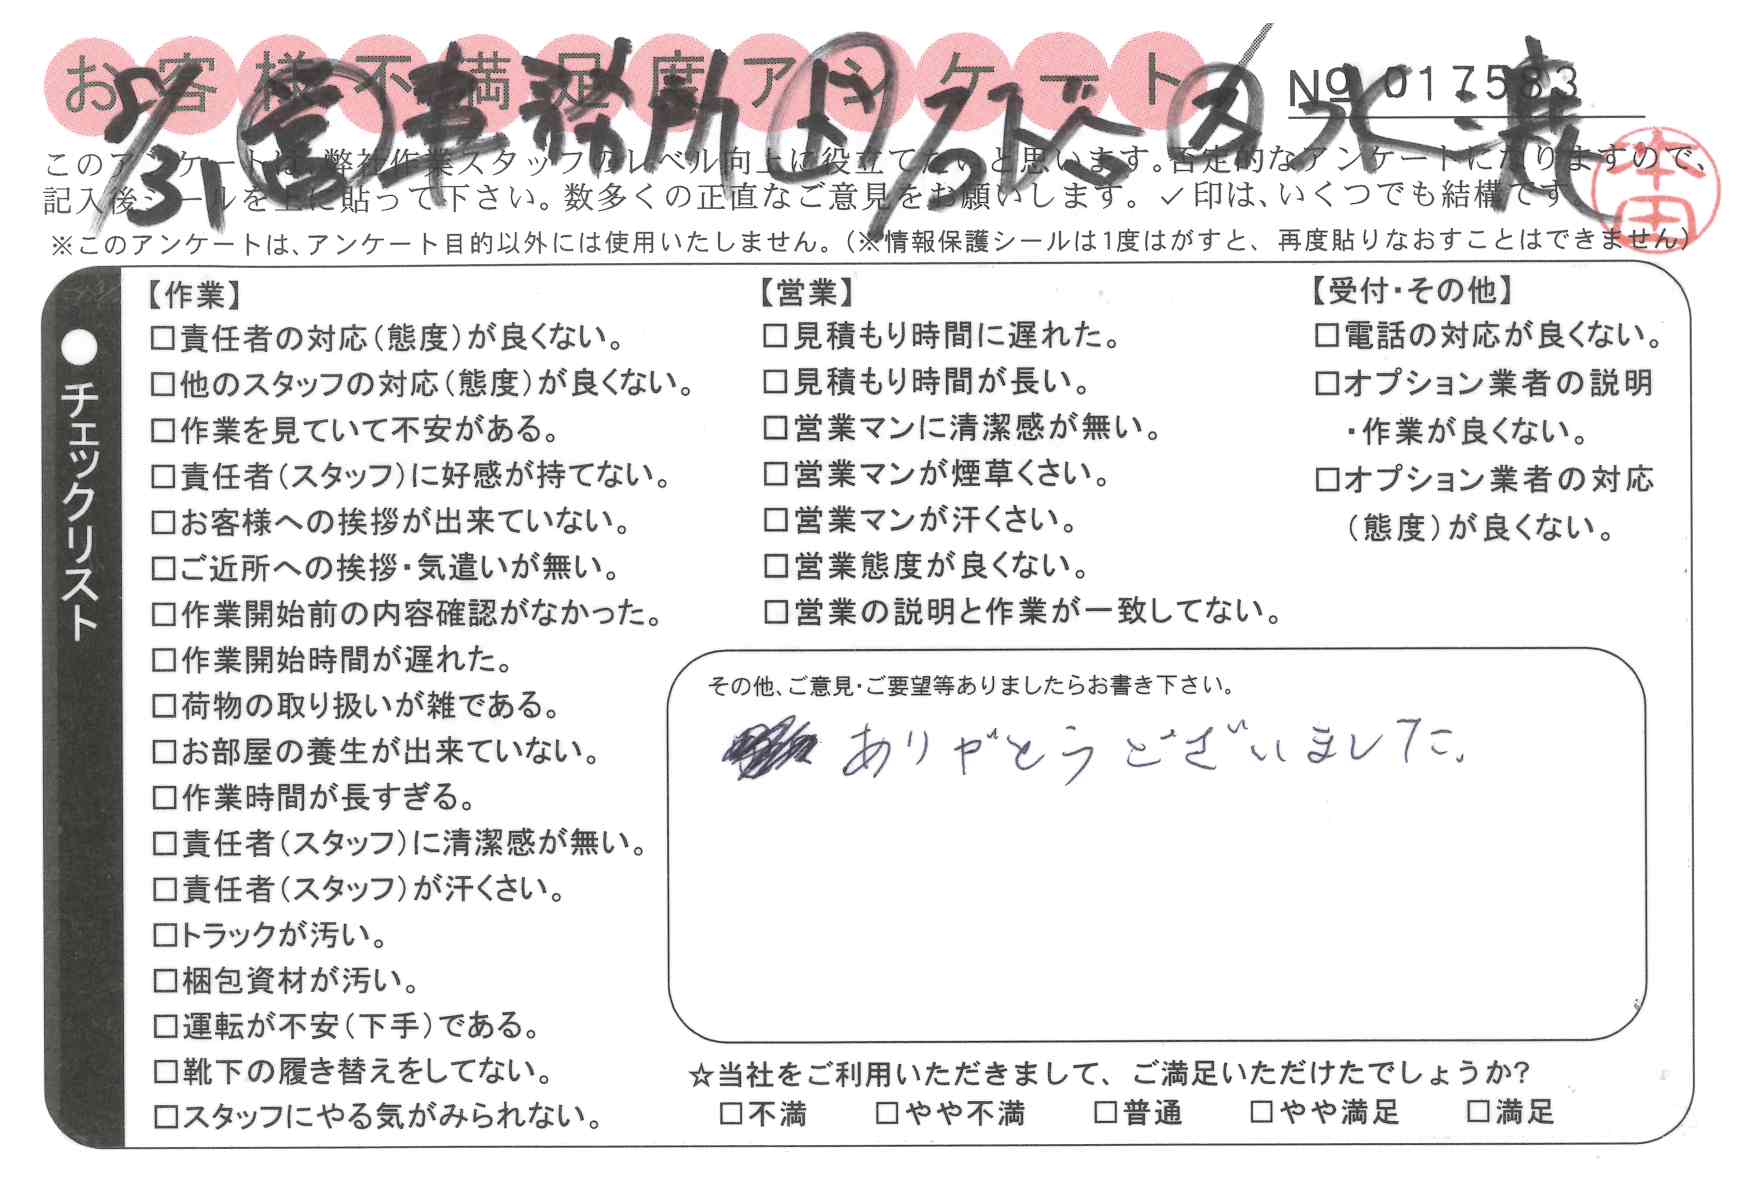 お客様不満足度アンケート
No 017583
8/31 営 事務所
このアンケートは、弊社作業スタッフのレベル向上に役立てたいと思います。否定的なアンケートになりますので、
記入後シールを上に貼って下さい。数多くの正直なご意見をお願いします。✓印は、いくつでも結構です
※このアンケートは、アンケート目的以外には使用いたしません。（※情報保護シールは1度はがすと、再度貼りなおすことはできません）
本田
●チェックリスト
【作業】
□責任者の対応（態度）が良くない。
□他のスタッフの対応（態度）が良くない。
□作業を見ていて不安がある。
□責任者（スタッフ）に好感が持てない。
□お客様への挨拶が出来ていない。
□ご近所への挨拶・気遣いが無い。
□作業開始前の内容確認がなかった。
□作業開始時間が遅れた。
□荷物の取り扱いが雑である。
□お部屋の養生が出来ていない。
□作業時間が長すぎる。
□責任者（スタッフ）に清潔感が無い。
□責任者（スタッフ）が汗くさい。
□トラックが汚い。
□梱包資材が汚い。
□運転が不安（下手）である。
□靴下の履き替えをしてない。
□スタッフにやる気がみられない。
【営業】
□見積もり時間に遅れた。
□見積もり時間が長い。
□営業マンに清潔感が無い。
□営業マンが煙草くさい。
□営業マンが汗くさい。
□営業態度が良くない。
□営業の説明と作業が一致してない。
【受付・その他】
□電話の対応が良くない。
□オプション業者の説明
・作業が良くない。
□オプション業者の対応
（態度）が良くない。
その他、ご意見・ご要望等ありましたらお書き下さい。
ありがとうございました。
☆当社をご利用いただきまして、ご満足いただけたでしょうか?
□不満 □やや不満 □普通 □やや満足 □満足